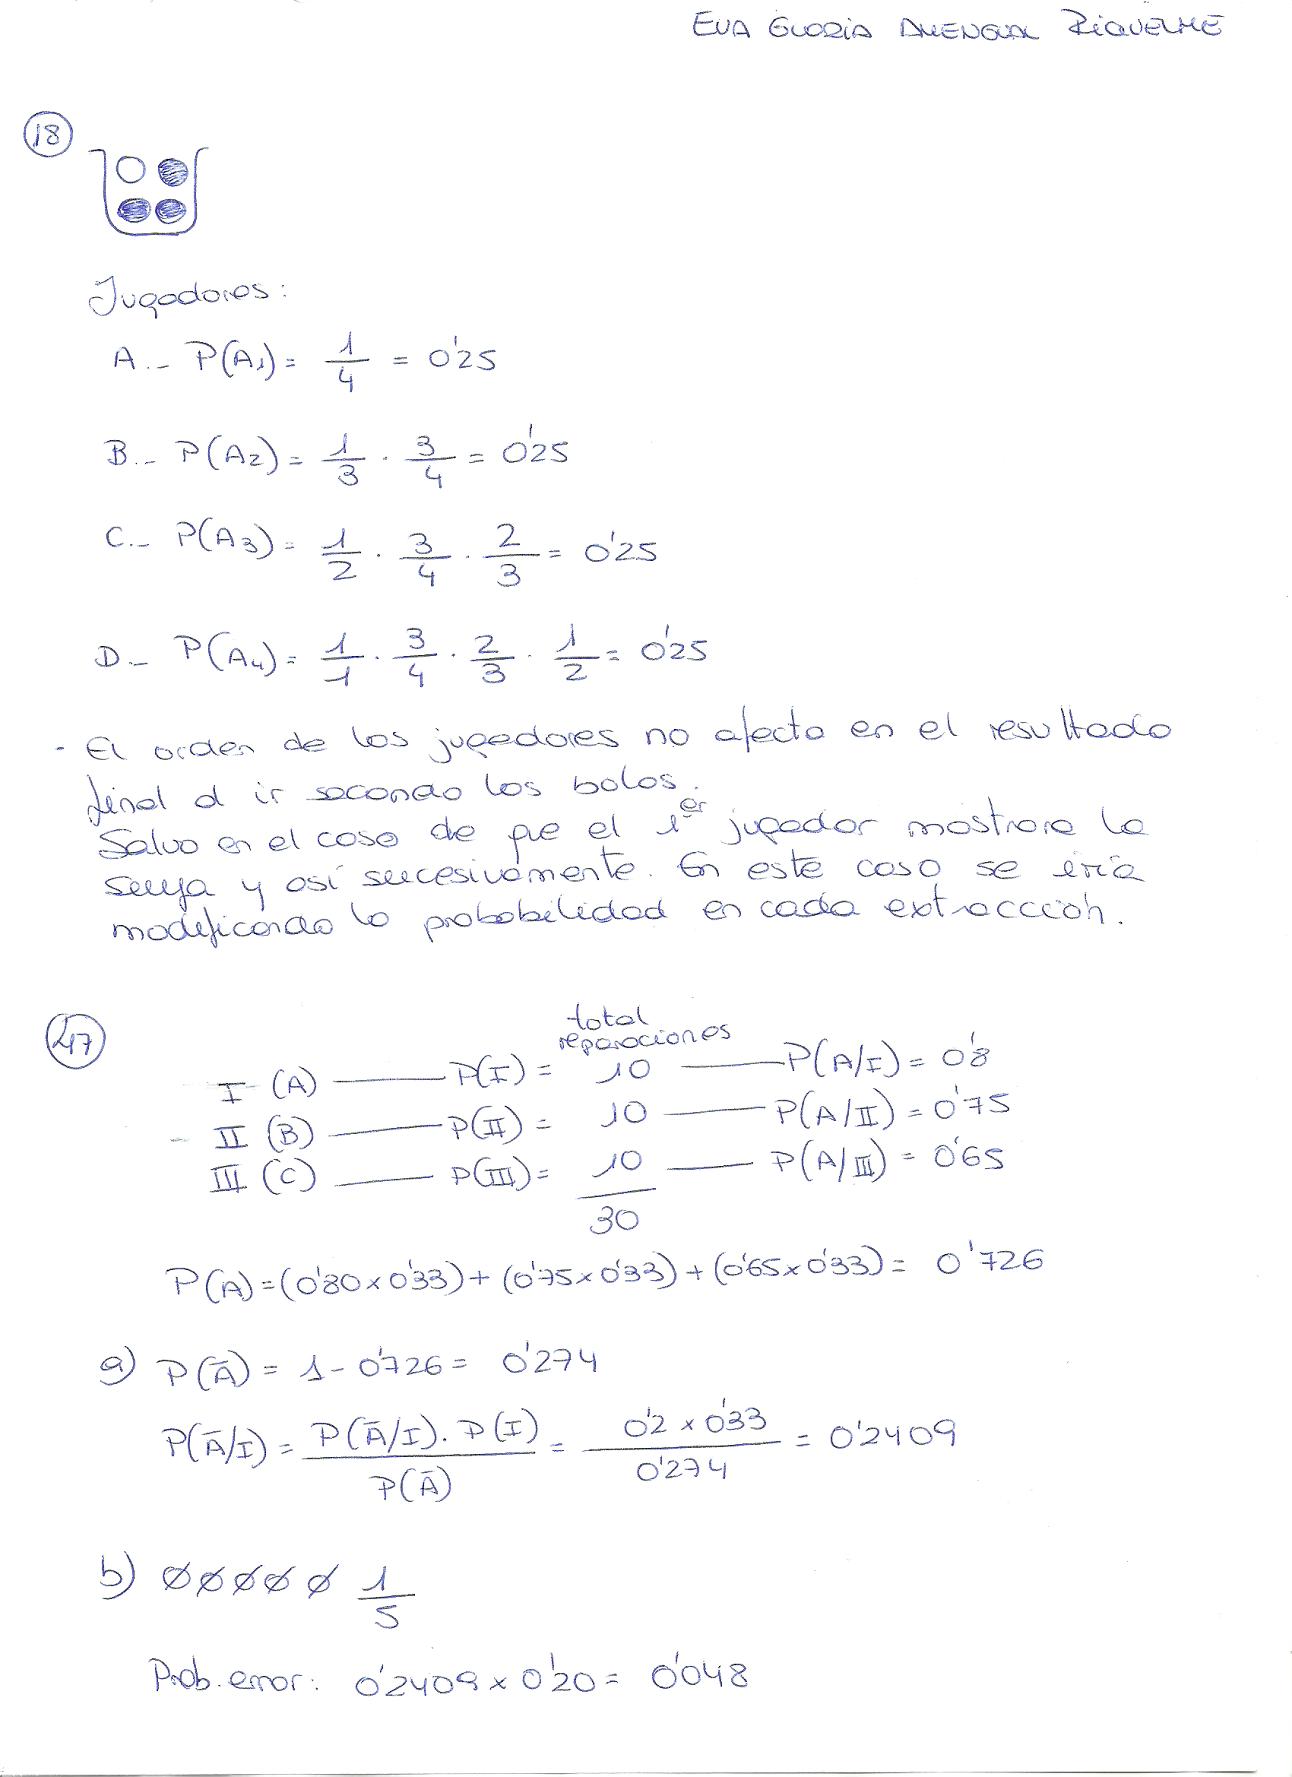 EVA GLORIA AMENGUAL RIQUELME
18
Jugadores:
A.- P(A1) = 1/4 = 0'25
B.- P(A2) = 1/3 · 3/4 = 0'25
C.- P(A3) = 1/2 · 3/4 · 2/3 = 0'25
D.- P(A4) = 1/1 · 3/4 · 2/3 · 1/2 = 0'25
- El orden de los jugadores no afecta en el resultado
final al ir sacando las bolas.
Salvo en el caso de que el 1er jugador mostrara la
suya y así sucesivamente. En este caso se iría
modificando la probabilidad en cada extracción.
47
total
reparaciones
I (A) — P(I) = 10 — P(A/I) = 0'8
II (B) — P(II) = 10 — P(A/II) = 0'75
III (C) — P(III) = 10 — P(A/III) = 0'65
30
P(A) = (0'80 x 0'33) + (0'75 x 0'33) + (0'65 x 0'33) = 0'726
a) P(Ā) = 1 - 0'726 = 0'274
P(Ā/I) = P(Ā/I) · P(I) / P(Ā) = 0'2 x 0'33 / 0'274 = 0'2409
b) Ø Ø Ø Ø Ø 1/5
Prob. error: 0'2409 x 0'20 = 0'048